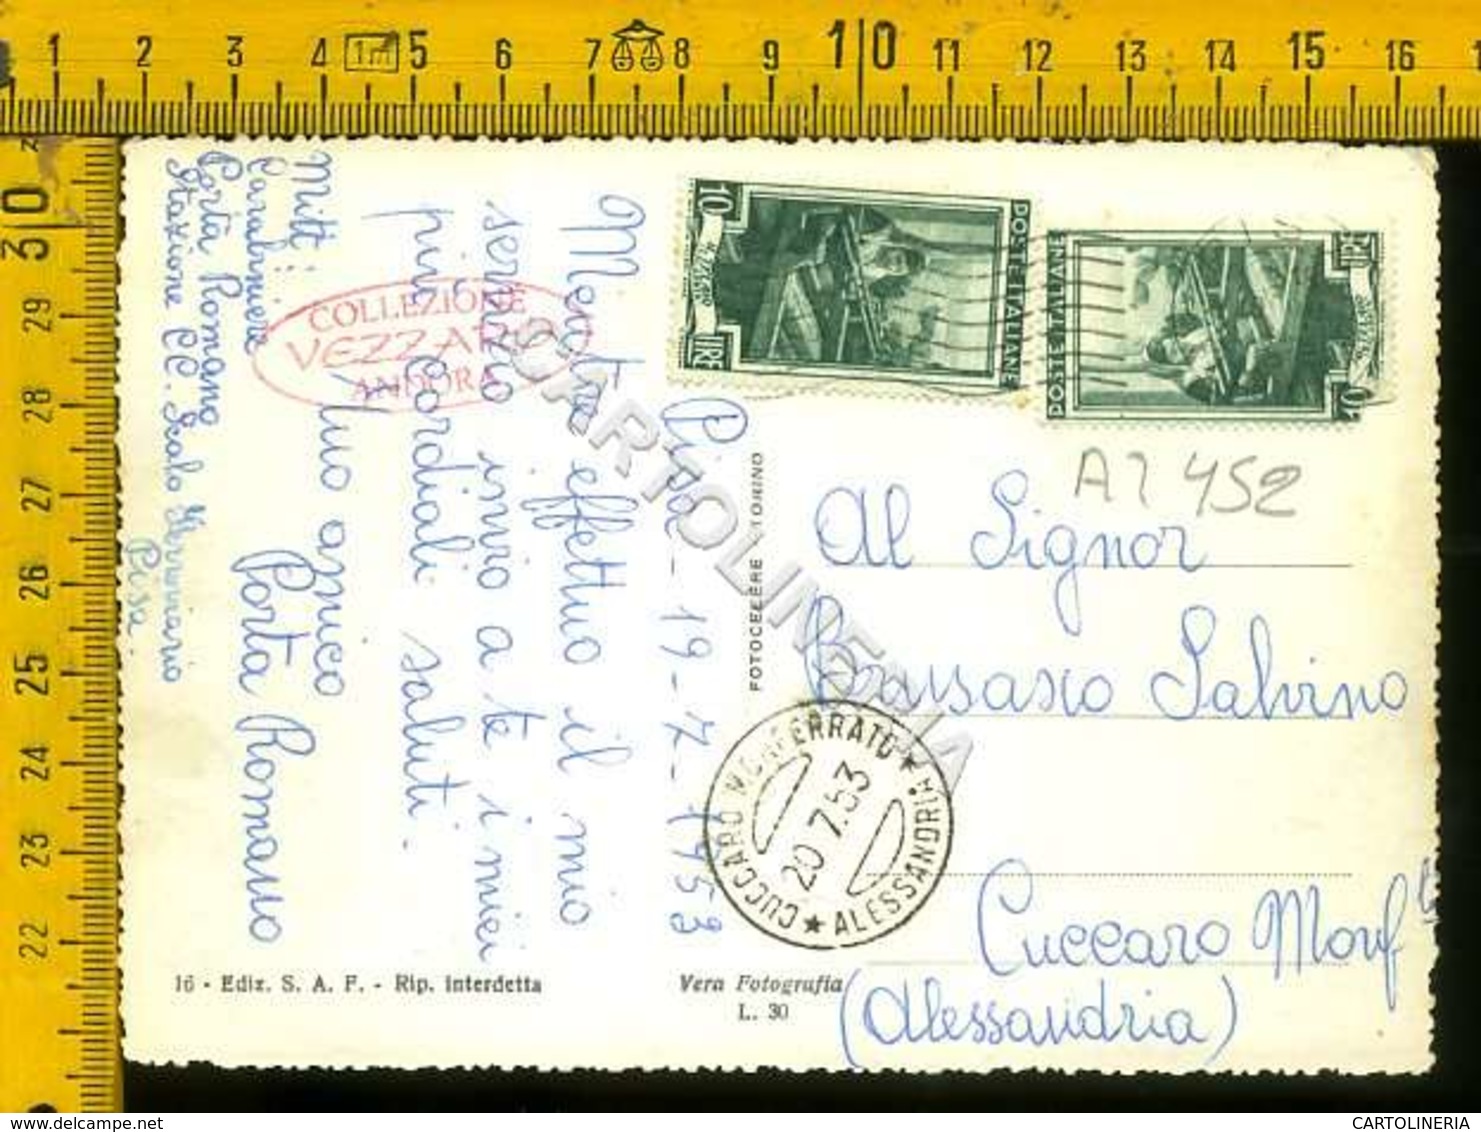 1 2 3 4 1m 5 6 7 8 9 10 11 12 13 14 15 16
30
29
28
27
26
25
24
23
22
Mitt:
Carabiniere
Porta Romano
Stazione CC. Scalo
Pisa
Pisa - 19-7-1953
Mentre effettuo il mio
servizio invio a te i miei
più cordiali saluti.
Tuo amico
Porta Romano
COLLEZIONE
VEZZARI
ANDORA
10 LIRE
POSTE ITALIANE
POSTE ITALIANE
A7 452
FOTOCELERE TORINO
Al Signor
Bausasco Salvino
Cuccaro Monf to
(Alessandria)
CUCCARO MONFERRATO
20.7.53
ALESSANDRIA
16 - Ediz. S. A. F. - Rip. Interdetta
Vera Fotografia
L. 30
CARTOLINERIA
CARTOLINERIA